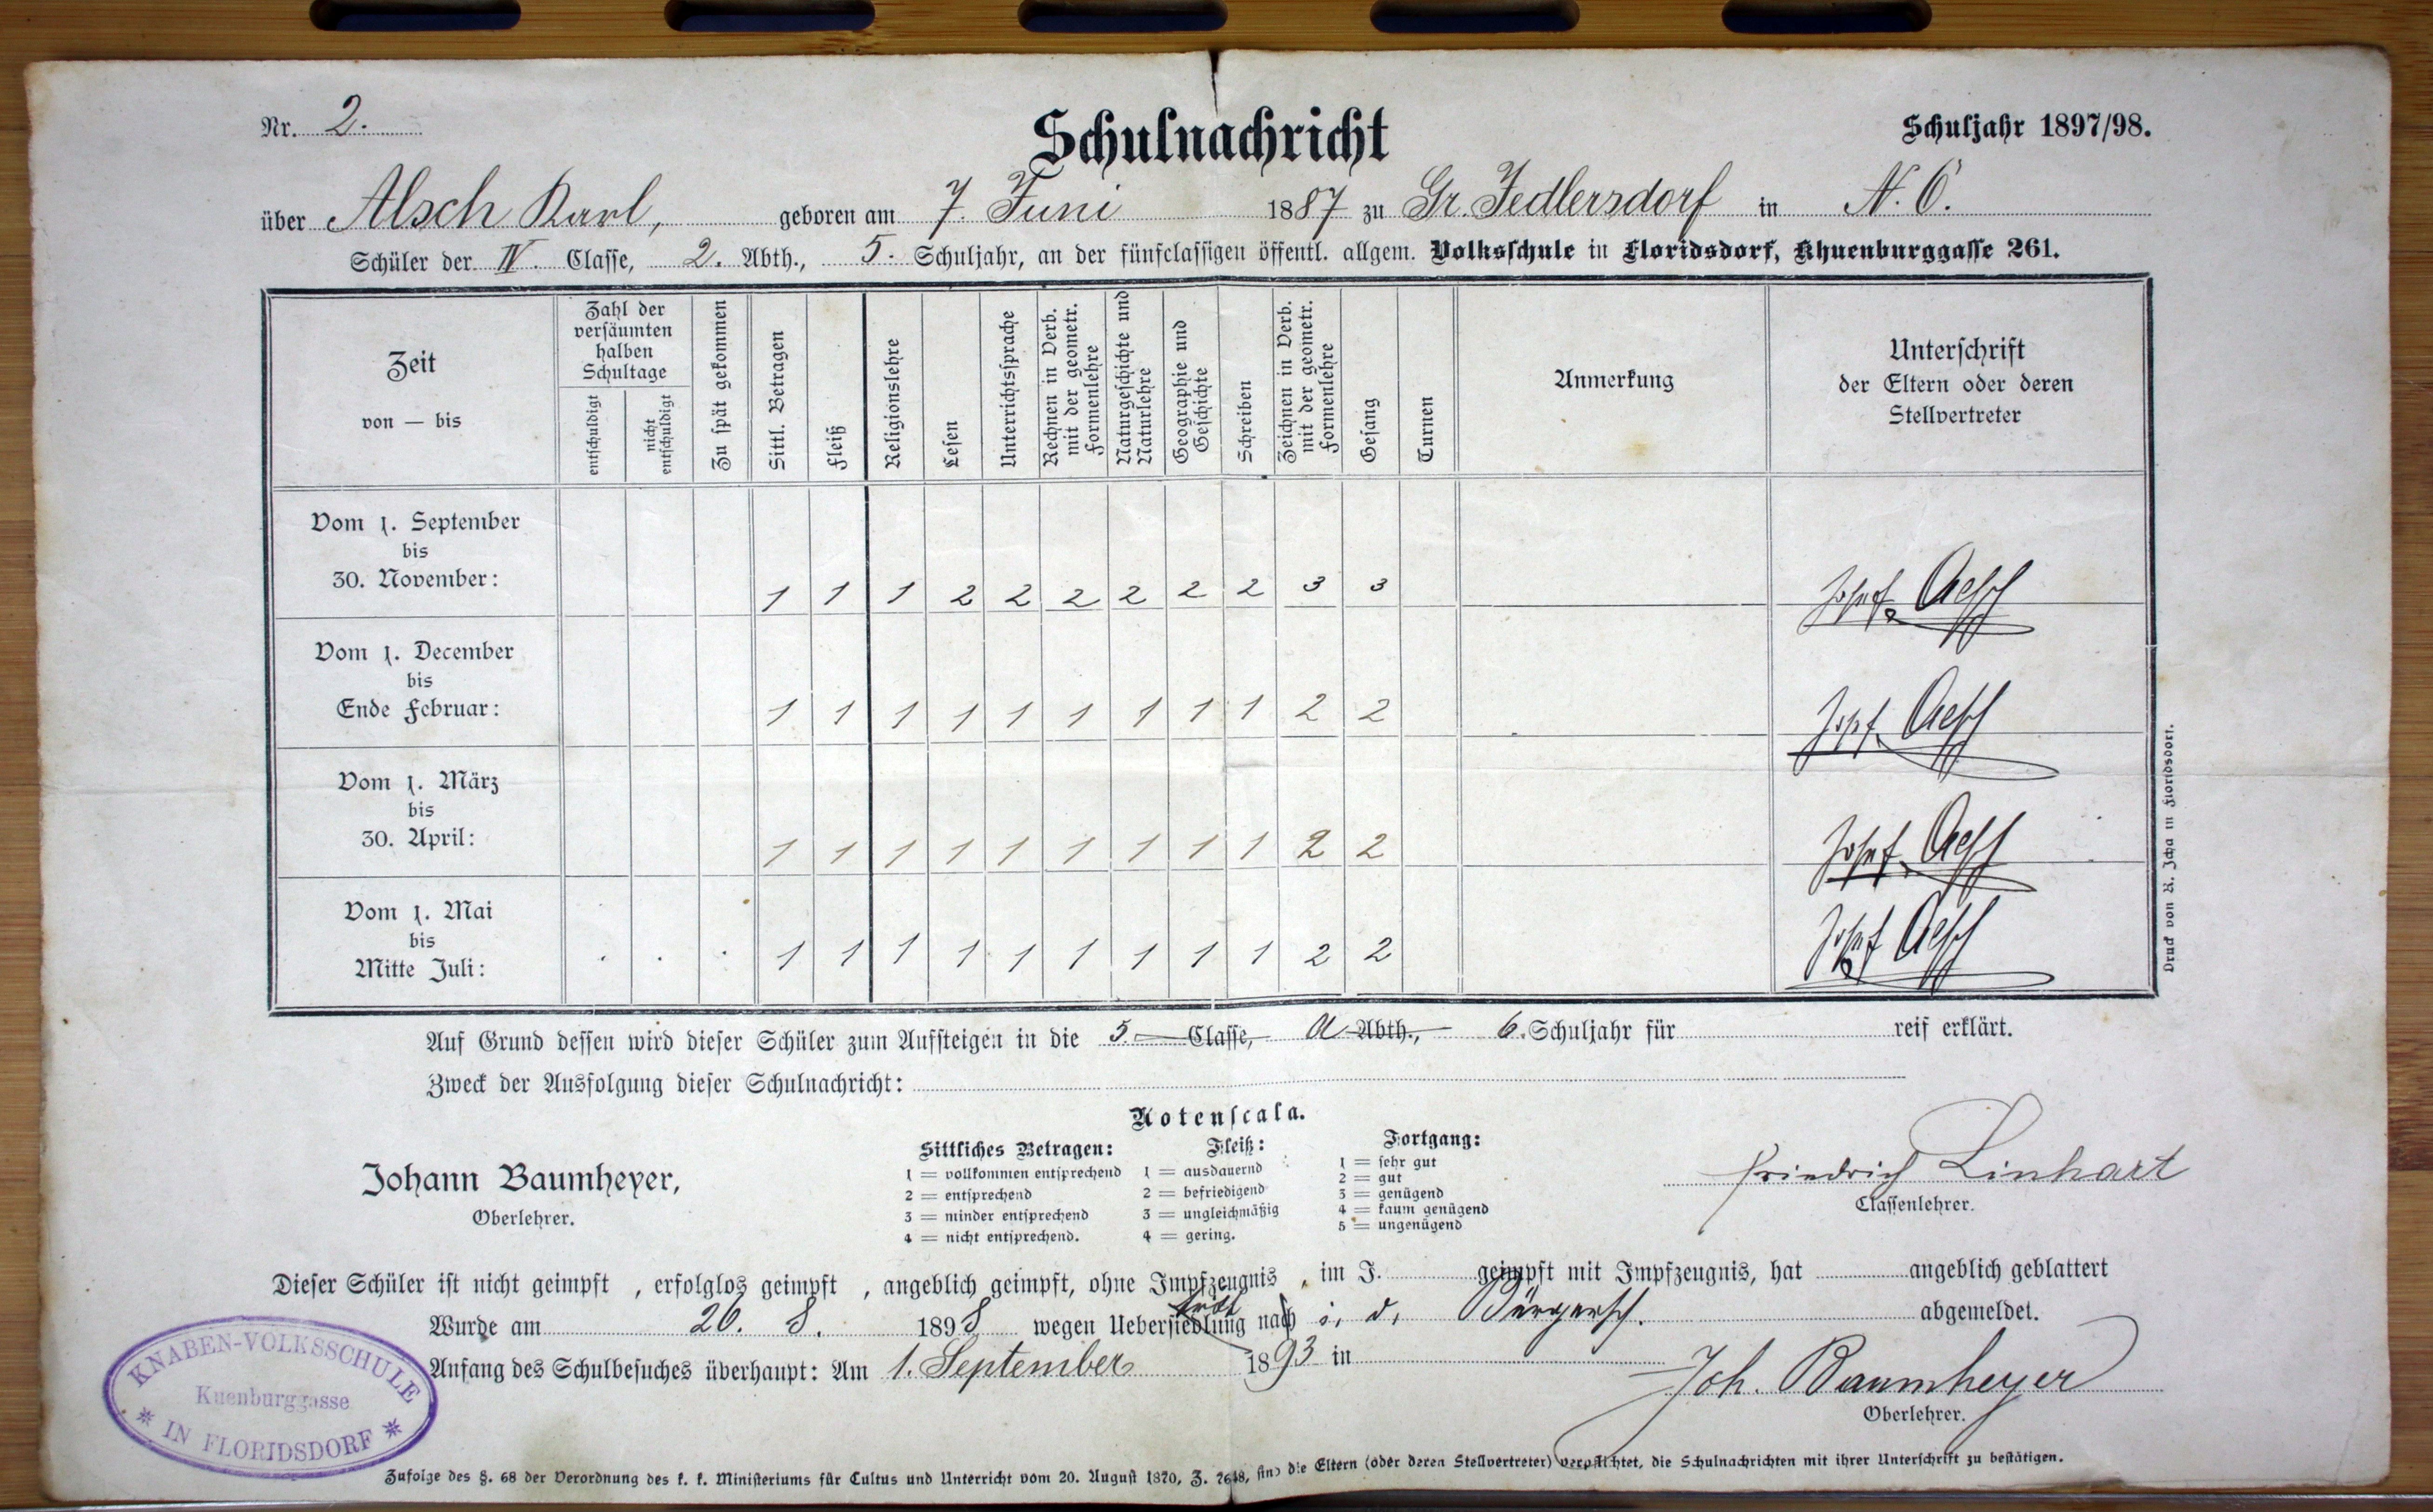 Nr. 2.
Schulnachricht
Schuljahr 1897/98.
über Alsch Karl, geboren am 7. Juni 1887 zu Gr. Jedlersdorf in N. Ö.
Schüler der IV. Classe, 2. Abth., 5. Schuljahr, an der fünfclassigen öffentl. allgem. Volksschule in Floridsdorf, Khuenburggasse 261.
Zeit
von — bis
Zahl der
versäumten
halben
Schultage
entschuldigt
nicht
entschuldigt
Zu spät gekommen
Sittl. Betragen
Fleiß
Religionslehre
Lesen
Unterrichtssprache
Rechnen in Verb.
mit der geometr.
Formenlehre
Naturgeschichte und
Naturlehre
Geographie und
Geschichte
Schreiben
Zeichnen in Verb.
mit der geometr.
Formenlehre
Gesang
Turnen
Anmerkung
Unterschrift
der Eltern oder deren
Stellvertreter
Vom 1. September
bis
30. November:
1 1 1 2 2 2 2 2 2 3 3
Josef Alsch
Vom 1. December
bis
Ende Februar:
1 1 1 1 1 1 1 1 1 2 2
Josef Alsch
Vom 1. März
bis
30. April:
1 1 1 1 1 1 1 1 1 2 2
Josef Alsch
Vom 1. Mai
bis
Mitte Juli:
. . . 1 1 1 1 1 1 1 1 1 2 2
Josef Alsch
Druck von R. Jcha in Floridsdorf.
Auf Grund dessen wird dieser Schüler zum Aufsteigen in die 5. Classe, a Abth., 6. Schuljahr für reif erklärt.
Zweck der Ausfolgung dieser Schulnachricht:
Notenscala.
Sittliches Betragen:
1 = vollkommen entsprechend
2 = entsprechend
3 = minder entsprechend
4 = nicht entsprechend.
Fleiß:
1 = ausdauernd
2 = befriedigend
3 = ungleichmäßig
4 = gering.
Fortgang:
1 = sehr gut
2 = gut
3 = genügend
4 = kaum genügend
5 = ungenügend
Johann Baumheyer,
Oberlehrer.
Friedrich Linhart
Classenlehrer.
Dieser Schüler ist nicht geimpft , erfolglos geimpft , angeblich geimpft, ohne Impfzeugnis , im J. geimpft mit Impfzeugnis, hat angeblich geblattert
Wurde am 26. 8. 1898 wegen Uebersiedlung nach i. d. Bürgersch. abgemeldet.
Anfang des Schulbesuches überhaupt: Am 1. September 1893 in
Joh. Baumheyer
Oberlehrer.
KNABEN-VOLKSSCHULE
Kuenburggasse
* IN FLORIDSDORF *
Zufolge des §. 68 der Verordnung des k. k. Ministeriums für Cultus und Unterricht vom 20. August 1870, Z. 7648, sind die Eltern (oder deren Stellvertreter) verpflichtet, die Schulnachrichten mit ihrer Unterschrift zu bestätigen.